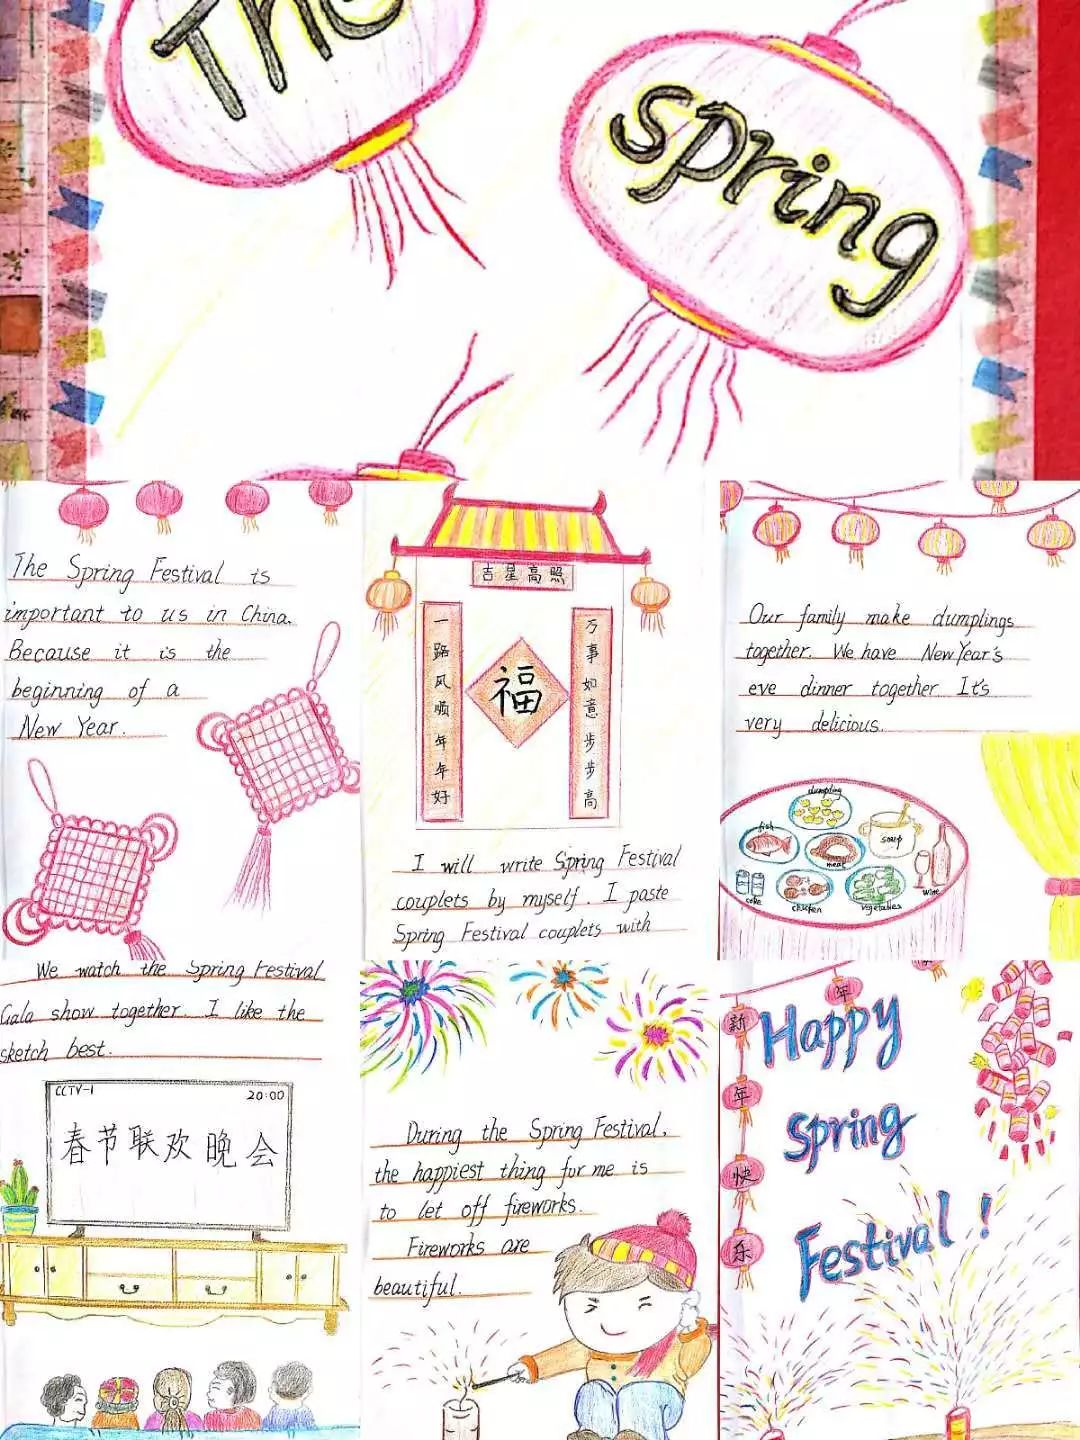 The
spring
The Spring Festival is
important to us in China.
Because it is the
beginning of a
New Year.
吉星高照
一路风顺年年好
福
万事如意步步高
I will write Spring Festival
couplets by myself. I paste
Spring Festival couplets with
Our family make dumplings
together. We have New Year's
eve dinner together. It's
very delicious.
dumpling
fish
soup
meat
coke
chicken
vegetables
wine
We watch the Spring Festival
Gala show together. I like the
sketch best.
CCTV-1
20:00
春节联欢晚会
During the Spring Festival,
the happiest thing for me is
to let off fireworks.
Fireworks are
beautiful.
年
新年快乐
Happy
spring
Festival!